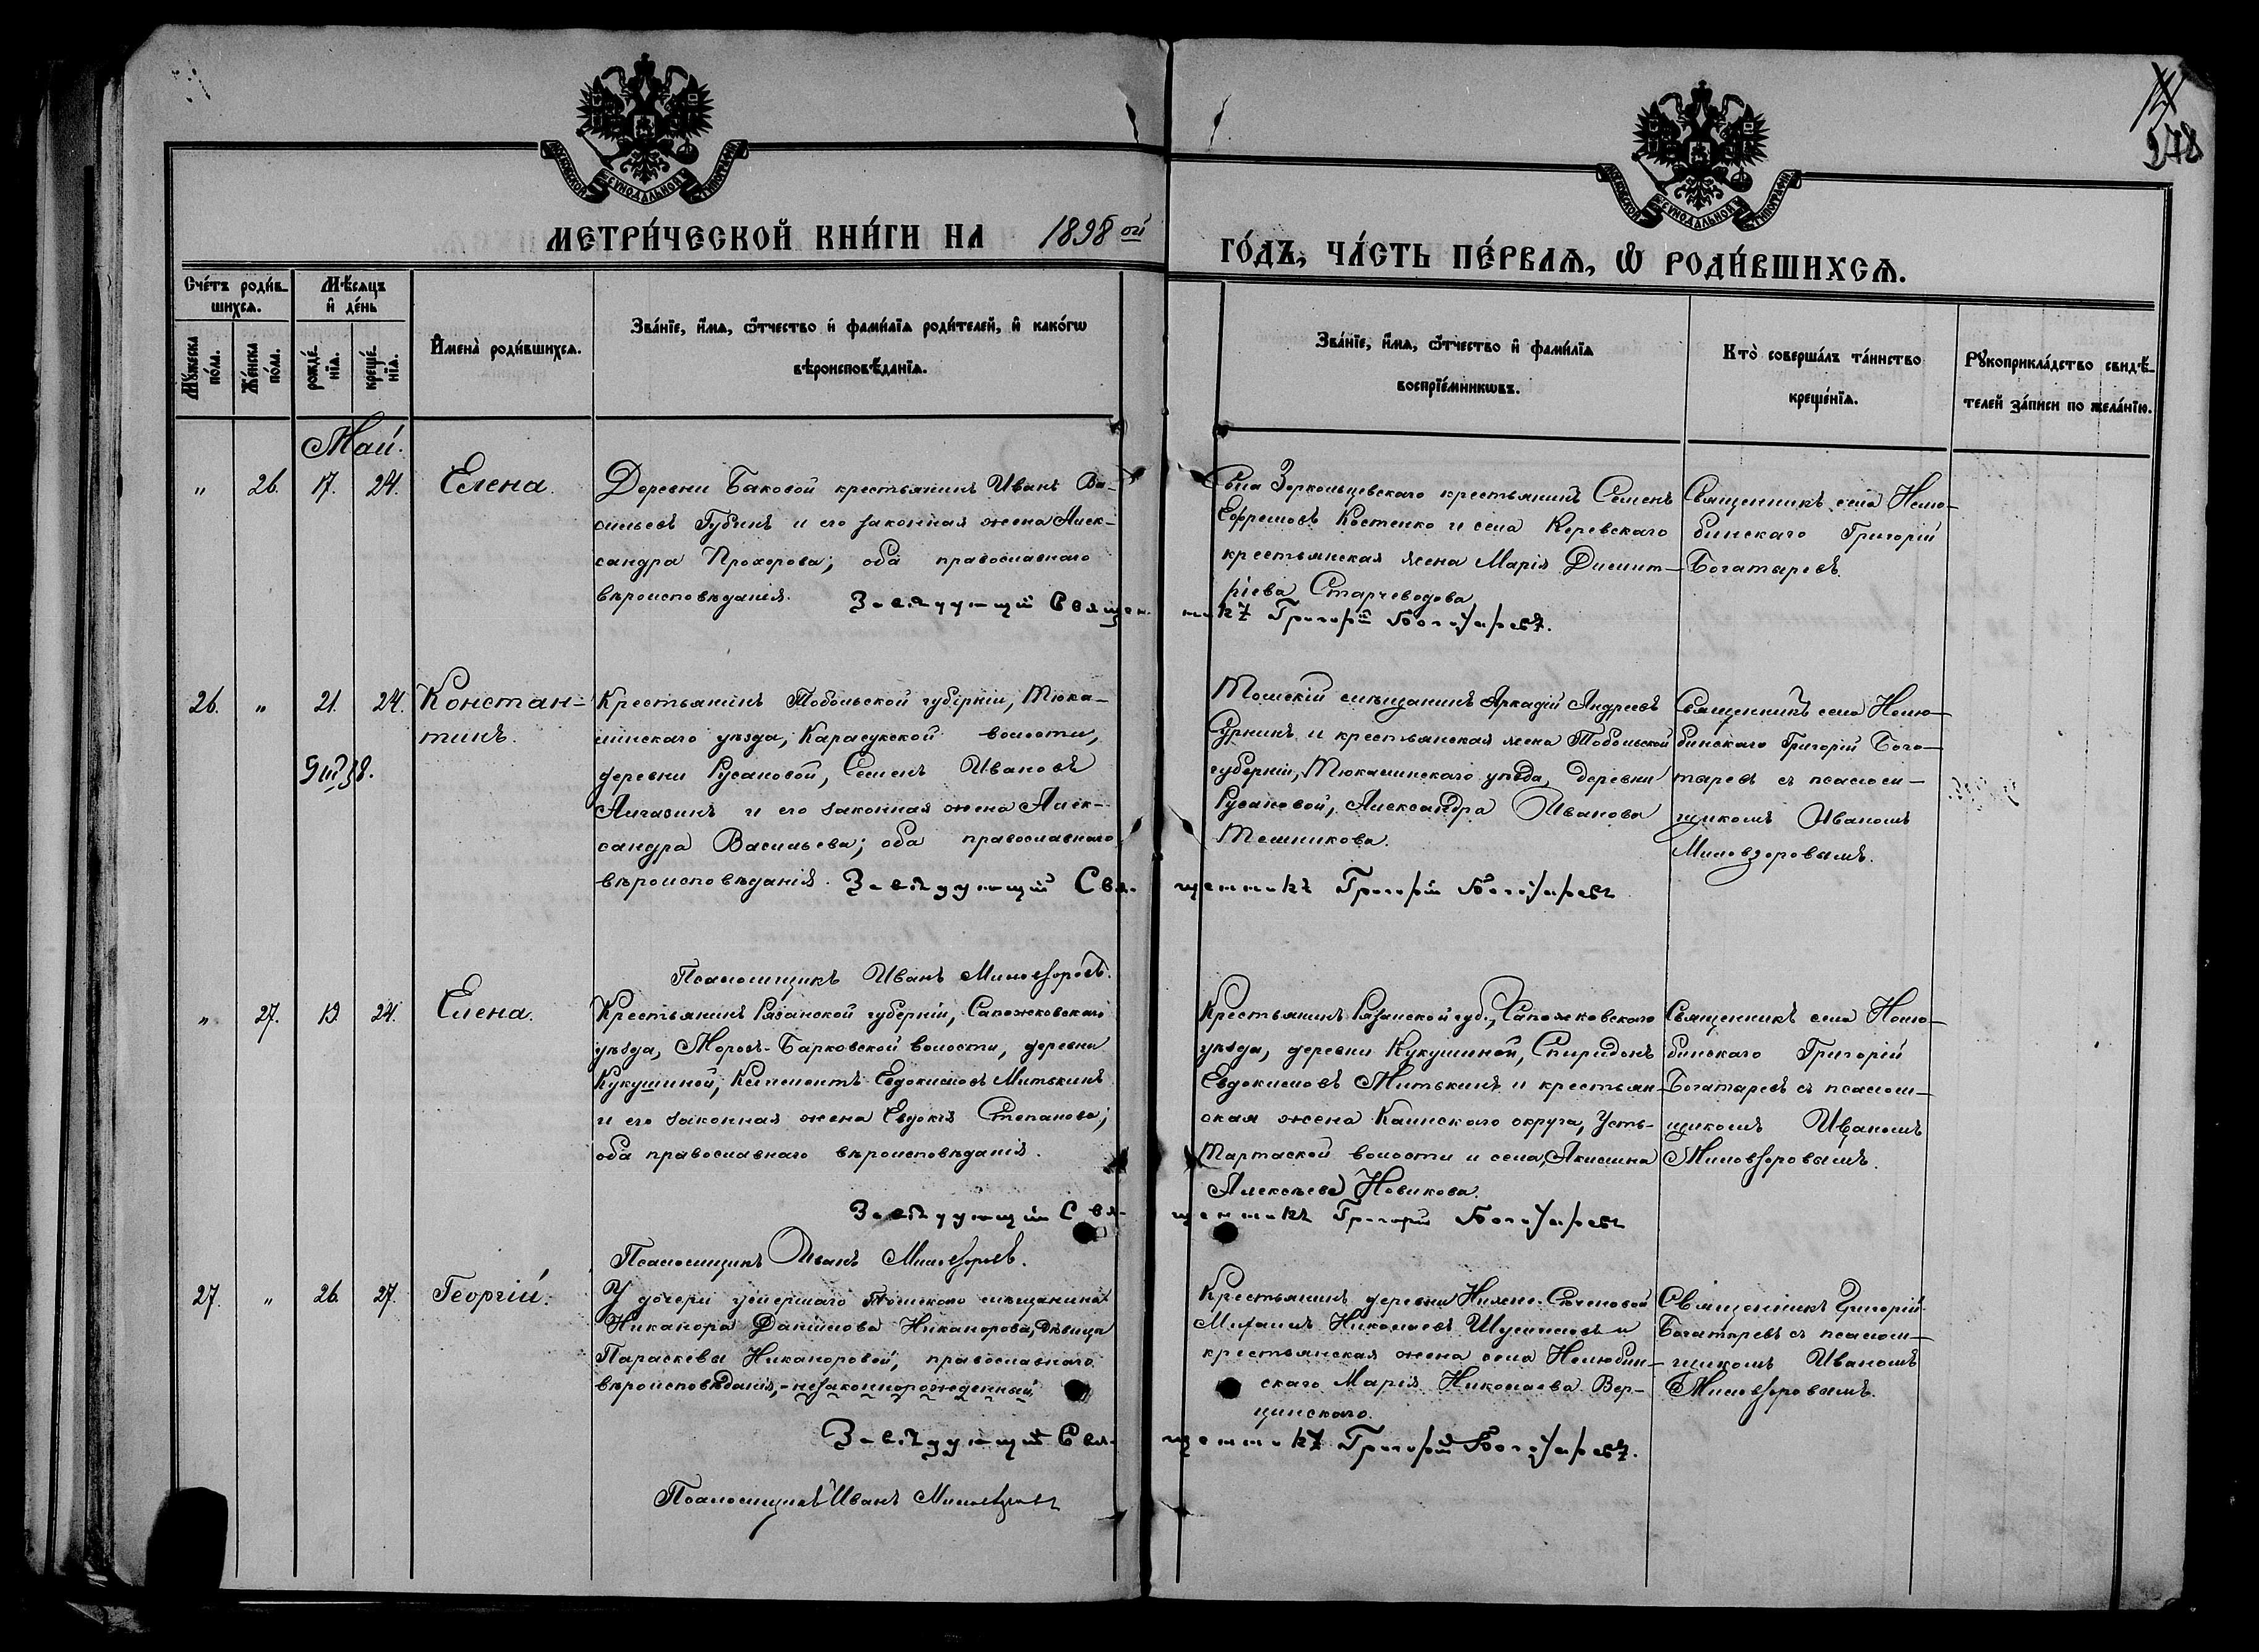 278
МОСКОВСКОЙ СѴНОДАЛЬНОЙ ТИПОГРАФІИ
МОСКОВСКОЙ СѴНОДАЛЬНОЙ ТИПОГРАФІИ
МЕТРИ́ЧЕСКОЙ КНИ́ГИ НА 1898 ой
ГО́ДЪ, ЧА́СТЬ ПЕ́РВАѦ, Ѡ҆ РОДИ́ВШИХСѦ.
Сче́тъ роди́в-
шихсѧ.
Мѣ́сѧцъ
и҆ де́нь
Мꙋ́жеска
по́ла.
Же́нска
по́ла.
рожде́-
нїѧ.
креще́-
нїѧ.
И҆мена̀ роди́вшихсѧ.
Зва́нїе, и҆́мѧ, ѻ҆́тчество и҆ фами́лїѧ роди́телей, и҆ како́гѡ
вѣроисповѣ́данїѧ.
Зва́нїе, и҆́мѧ, ѻ҆́тчество и҆ фами́лїѧ
воспрїе́мникѡвъ.
Кто̀ соверша́лъ та́инство
креще́нїѧ.
Рꙋкоприкла́дство свидѣ́-
телей за́писи по жела́нїю.
Май.
" 26. 17. 24. Елена.
Деревни Баковой крестьянинъ Иванъ Ва-
сильевъ Губинъ и его законная жена Алек-
сандра Прохорова; оба православнаго
вѣроисповѣданія.
Села Зеркольцевскаго крестьянинъ Семенъ
Ефремовъ Костенко и села Керевскаго
крестьянская жена Марія Димит-
ріева Старчеводова
Священникъ села Нелю-
бинскаго Григорій
Богатыревъ.
Завѣдующій Священникъ Григорій Богатыревъ.
26. " 21. 24. Констан-
тинъ.
Крестьянинъ Тобольской губерніи, Тюка-
линскаго уѣзда, Карасукской волости,
деревни Русановой, Семенъ Ивановъ
Алгазинъ и его законная жена Алек-
сандра Васильева; оба православнаго
вѣроисповѣданія.
Томскій мѣщанинъ Аркадій Андреевъ
Сурнинъ и крестьянская жена Тобольской
губерніи, Тюкалинскаго уѣзда, деревни
Русановой, Александра Иванова
Мешникова.
Священникъ села Нелю-
бинскаго Григорій Бога-
тыревъ съ псаломъ-
щикомъ Иваномъ
Миловзоровымъ.
Завѣдующій Священникъ Григорій Богатыревъ
Псаломщикъ Иванъ Миловзоровъ.
" 27. 19. 24. Елена.
Крестьянинъ Рязанской губерніи, Сапожковскаго
уѣзда, Морозъ-Барковской волости, деревни
Кукушиной, Климентъ Евдокимовъ Митькинъ
и его законная жена Евдокія Степанова;
оба православнаго вѣроисповѣданія.
Крестьянинъ Рязанской губ., Сапожковскаго
уѣзда, деревни Кукушиной, Спиридонъ
Евдокимовъ Митькинъ и крестьян-
ская жена Каинскаго округа, Усть-
Тартаской волости и села, Акилина
Алексѣева Новикова.
Священникъ села Нелю-
бинскаго Григорій
Богатыревъ съ псалом-
щикомъ Иваномъ
Миловзоровымъ.
Завѣдующій Священникъ Григорій Богатыревъ
Псаломщикъ Иванъ Миловзоровъ.
27. " 26. 27. Георгій.
У дочери умершаго Томскаго мѣщанина
Никанора Данилова Никанорова, дѣвицы
Параскевы Никаноровой, православнаго
вѣроисповѣданія, - незаконнорожденный
Крестьянинъ деревни Нижне-Сѣченовой
Михаилъ Николаевъ Шумиловъ и
крестьянская жена села Нелюбин-
скаго Марія Николаева Вер-
щинскаго.
Священникъ Григорій
Богатыревъ съ псалом-
щикомъ Иваномъ
Миловзоровымъ.
Завѣдующій Священникъ Григорій Богатыревъ.
Псаломщикъ Иванъ Миловзоровъ